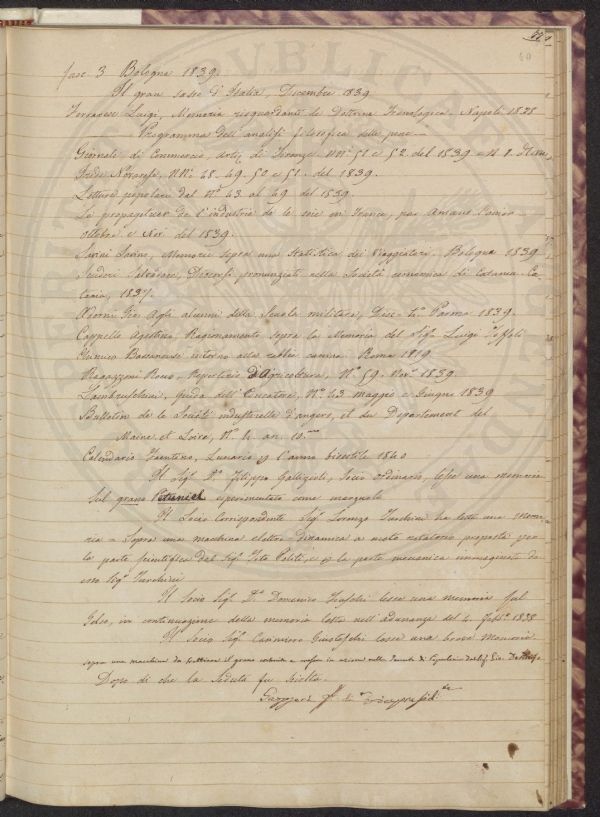 fasc. 3 Bologna 1839.
Il gran sasso d'Italia, Dicembre 1839
Luigi, Memoria riguardante la Dottrina Frenologica. Napoli 1838
Programma dell'analisi filosofica delle
Giornale di Commercio, Arti, di Firenze NNi 51 e 52. del 1839
NNi. 48. 49. 50 e 51. del 1839.
Letture popolari dal No 43 al 49 del 1839.
Le propagateur de l'industrie de la soie en France, par Amans Carrier
Ottobre e Nov. del 1839.
Savini Savino, Memorie sopra una Statistica dei Viaggiatori. Bologna 1839
Salvadore, Discorsi pronunziati nella Società economica di Catania. Ca-
tania, 1837.
agli alunni della Scuola militare, Parma 1839.
Cappello Agostino, Ragionamento sopra la Memoria del Sigr Luigi Toffoli
Chimico Bassanese intorno alla rabbia canina. Roma 1819.
Ragazzoni Rocco, Repertorio d'Agricoltura, No 59. Novr 1839
Lambruschini, Guida dell'Educatore, No. 43 Maggio e Giugno 1839
Bulletin de la Société industrielle d'angers, et du Departement del
Maine et Loire, No. 4. an. 10.me
Calendario Trentino, Lunario p l'anno bisestile 1840
Il Sigr Dr Filippo Gallizioli, Socio ordinario, lesse una memoria
sul grano sperimentato come marzuolo
Il Socio Corrispondente Sigr Lorenzo Turchini ha letto una Memo-
ria = Sopra una macchina elettro dinamica a moto rotatorio proposta per
la parte scientifica dal Sigr Tito Politi, e p la parte meccanica immaginata da
esso Sigr Turchini
Il Socio Sigr Dr Domenico lesse una memoria sul
Gelso, in continuazione della memoria letta nell'adunanza del 4. Febbo 1838
Il Socio Sigr Casimirro lesse una breve Memoria
sopra una macchina da il grano
Dopo di che la Seduta fu sciolta.